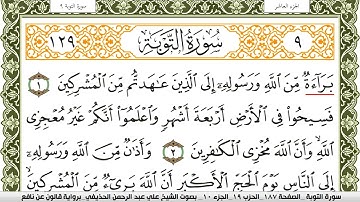 الجزء العاشر
سورة التوبة ٩
١٢٩
سُورَةُ التَّوْبَةِ
٩
بَرَآءَةٌ مِّنَ اَ۬للَّهِ وَرَسُولِهِۦٓ إِلَى اَ۬لذِينَ عَٰهَدتُّم مِّنَ اَ۬لْمُشْرِكِينَ ١
فَسِيحُواْ فِے اِ۬لْأَرْضِ أَرْبَعَةَ أَشْهُرٖ وَاعْلَمُوٓاْ أَنَّكُمْ غَيْرُ مُعْجِزِے
اِ۬للَّهِ وَأَنَّ اَ۬للَّهَ مُخْزِے اِ۬لْكَٰفِرِينَ ٢ وَأَذَٰنٌ مِّنَ اَ۬للَّهِ وَرَسُولِهِۦٓ
إِلَى اَ۬لنَّاسِ يَوْمَ اَ۬لْحَجِّ اِ۬لْأَكْبَرِ أَنَّ اَ۬للَّهَ بَرِےٓءٌ مِّنَ اَ۬لْمُشْرِكِينَ
سورة التوبة - الصفحة ١٨٧ - الحزب ١٩ - الجزء ١٠ - بصوت الشيخ علي عبد الرحمن الحذيفي - برواية قالون عن نافع